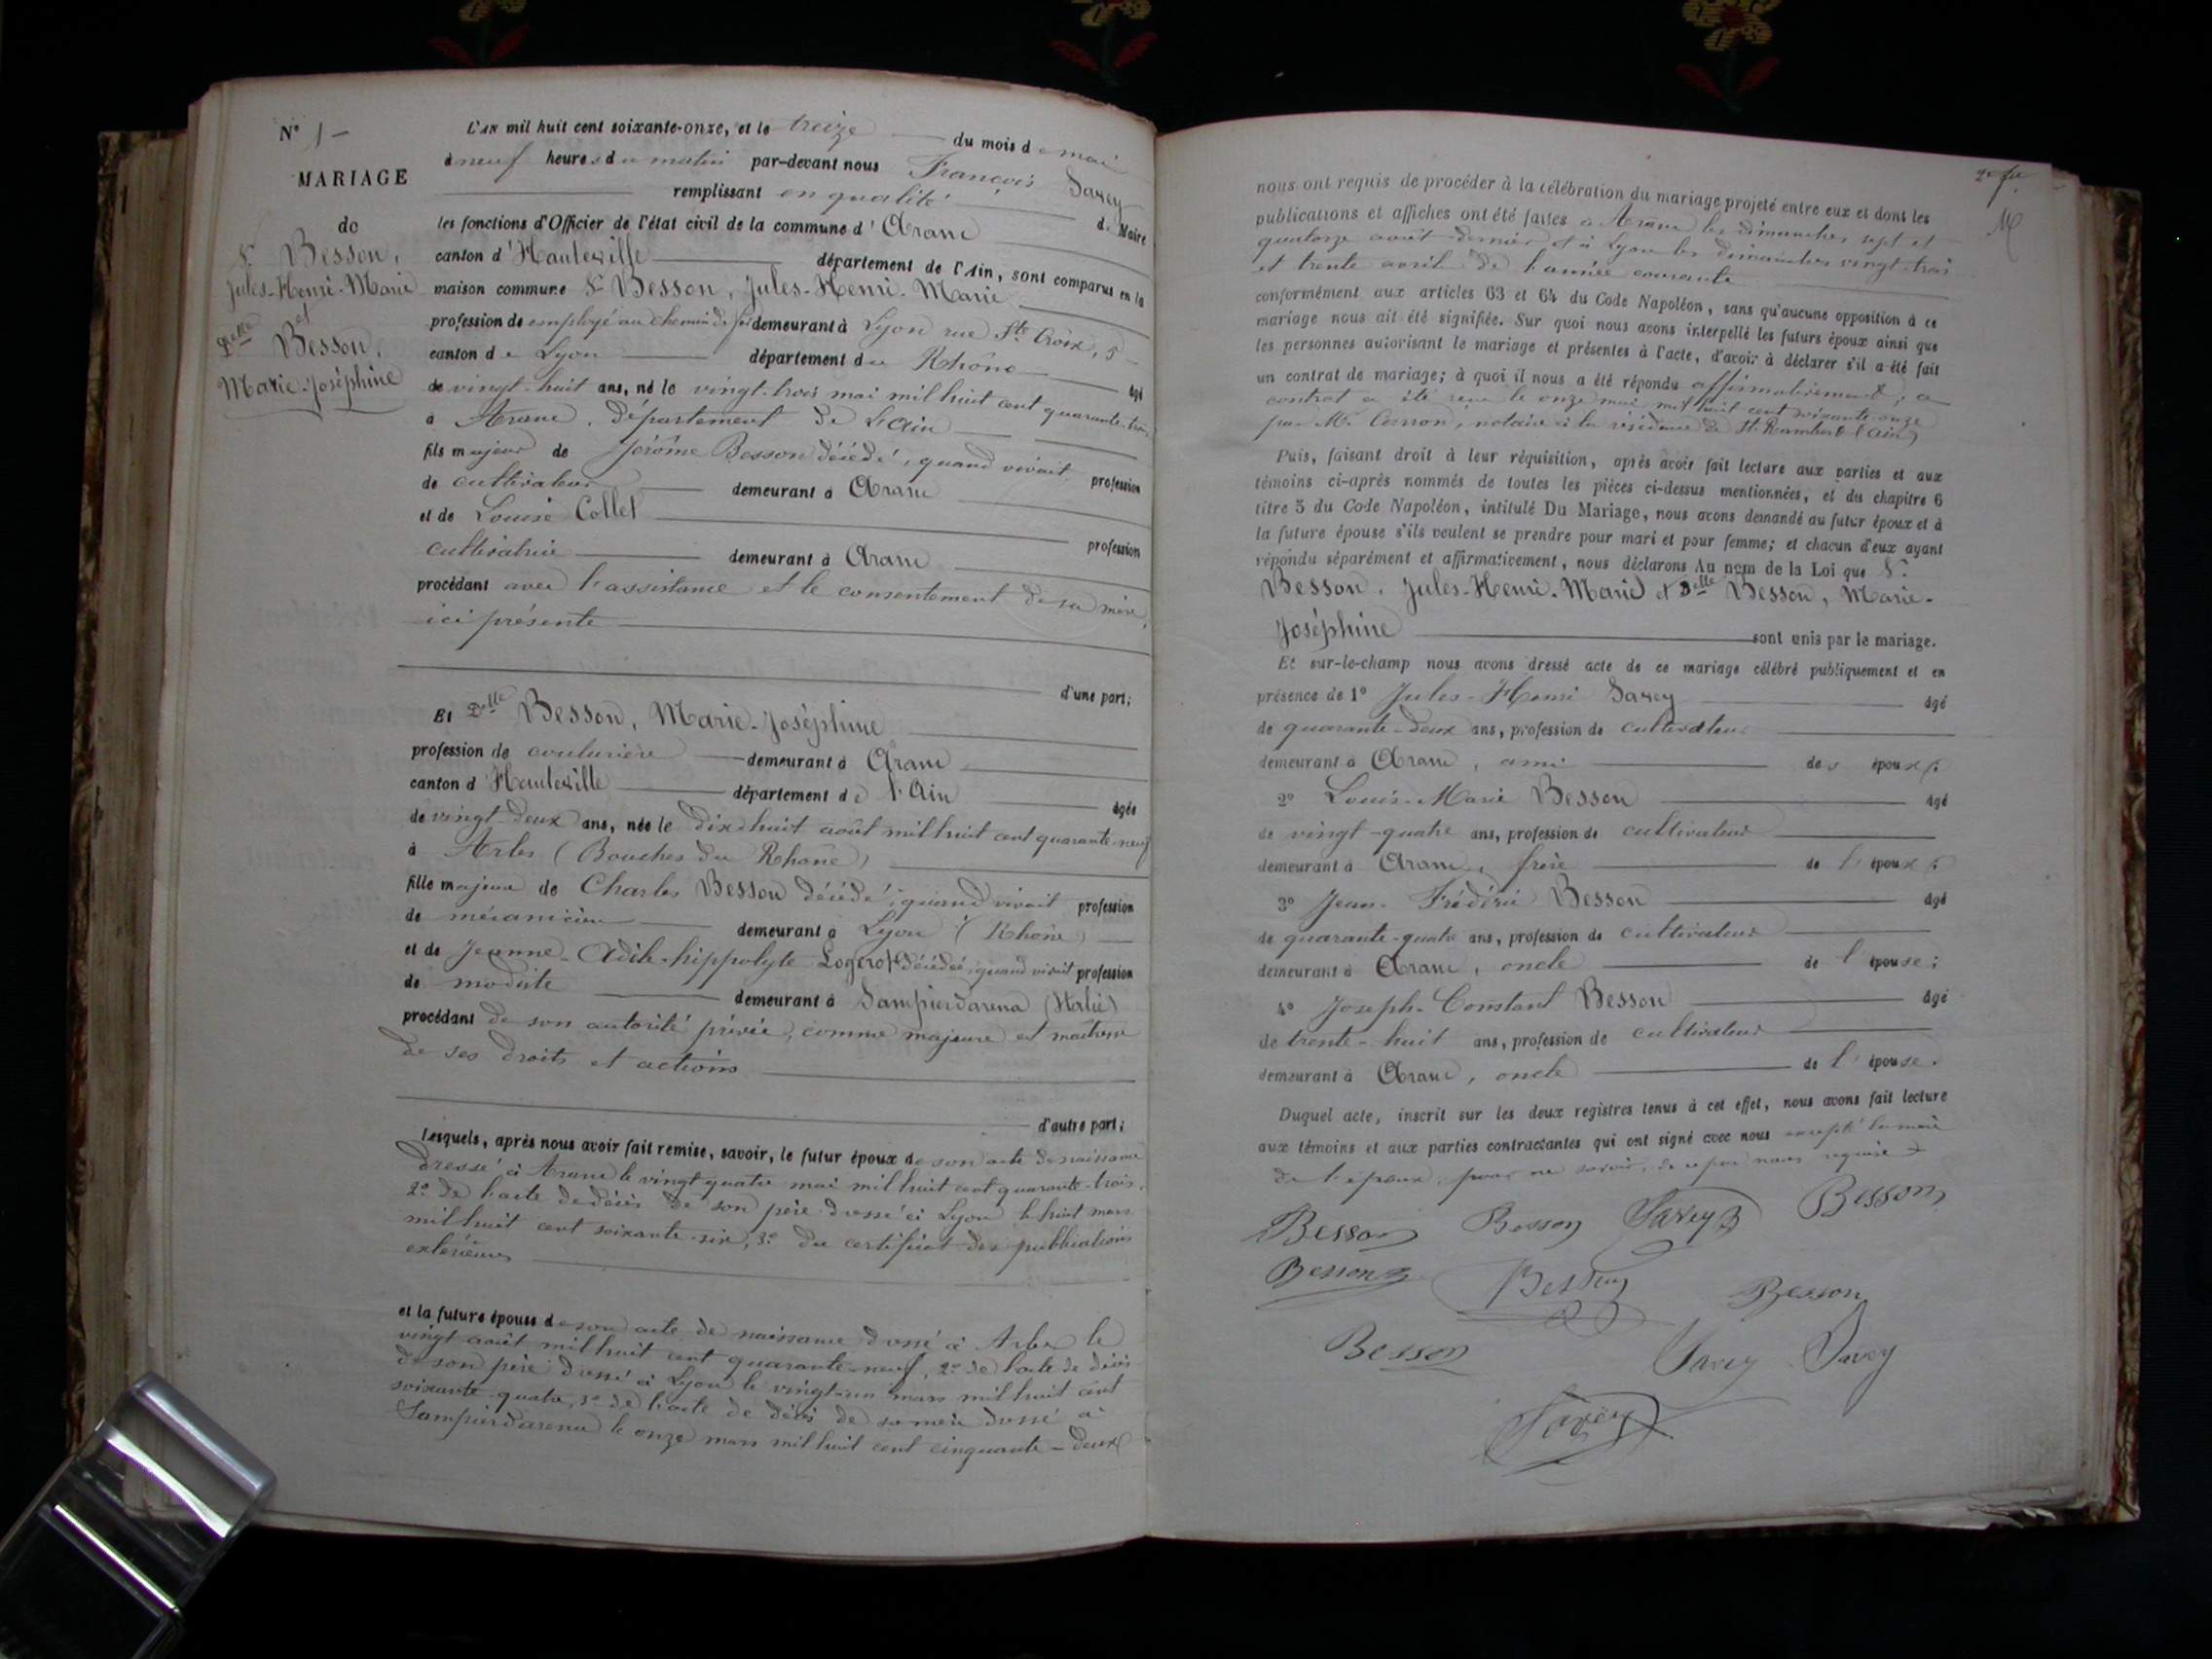 N° 1 -
MARIAGE
de
Sr Besson,
Jules-Henri-Marie
et
Delle Besson,
Marie-Joséphine
L'AN mil huit cent soixante-onze, et le treize du mois de mai
à neuf heures du matin par-devant nous François Savey
remplissant en qualité de Maire
les fonctions d'Officier de l'état civil de la commune d'Aranc
canton d'Hauteville département de l'Ain, sont comparus en la
maison commune Sr Besson, Jules-Henri-Marie
profession de employé au chemin de fer demeurant à Lyon rue Ste Croix, 5
canton de Lyon département du Rhône âgé
de vingt-huit ans, né le vingt-trois mai mil huit cent quarante-trois
à Aranc, département de l'Ain
fils majeur de Jérôme Besson décédé, quand vivait, profession
de cultivateur demeurant à Aranc
et de Louise Collet profession
cultivatrice demeurant à Aranc
procédant avec l'assistance et le consentement de sa mère,
ici présente
d'une part;
Et Delle Besson, Marie-Joséphine
profession de couturière demeurant à Aranc
canton d'Hauteville département de l'Ain âgée
de vingt-deux ans, née le dix-huit août mil huit cent quarante-neuf
à Arles (Bouches du Rhône)
fille majeure de Charles Besson décédé, quand vivait profession
de mécanicien demeurant à Lyon (Rhône)
et de Jeanne-Adèle-hippolyte Logerot décédée, quand vivait profession
de modiste demeurant à Sampierdarena (Italie)
procédant de son autorité privée, comme majeure et maîtresse
de ses droits et actions
d'autre part;
Lesquels, après nous avoir fait remise, savoir, le futur époux de son acte de naissance
dressé à Aranc le vingt quatre mai mil huit cent quarante-trois,
2° de l'acte de décès de son père dressé à Lyon le huit mars
mil huit cent soixante-six, 3° du certificat des publications
extérieures
et la future épouse de son acte de naissance dressé à Arles le
vingt août mil huit cent quarante-neuf, 2° de l'acte de décès
de son père dressé à Lyon le vingt-un mars mil huit cent
soixante-quatre, 3° de l'acte de décès de sa mère dressé à
Sampierdarena le onze mars mil huit cent cinquante-deux
nous ont requis de procéder à la célébration du mariage projeté entre eux et dont les
publications et affiches ont été faites à Aranc les dimanches sept et
quatorze août dernier et à Lyon les dimanches vingt-trois
et trente avril de l'année courante
conformément aux articles 63 et 64 du Code Napoléon, sans qu'aucune opposition à ce
mariage nous ait été signifiée. Sur quoi nous avons interpellé les futurs époux ainsi que
les personnes autorisant le mariage et présentes à l'acte, d'avoir à déclarer s'il a été fait
un contrat de mariage; à quoi il nous a été répondu affirmativement; ce
contrat a été reçu le onze mai mil huit cent soixante-onze
par Me notaire à la résidence de St Rambert (Ain)
Puis, faisant droit à leur réquisition, après avoir fait lecture aux parties et aux
témoins ci-après nommés de toutes les pièces ci-dessus mentionnées, et du chapitre 6
titre 5 du Code Napoléon, intitulé Du Mariage, nous avons demandé au futur époux et à
la future épouse s'ils veulent se prendre pour mari et pour femme; et chacun d'eux ayant
répondu séparément et affirmativement, nous déclarons Au nom de la Loi que Sr
Besson, Jules-Henri-Marie et Delle Besson, Marie-
Joséphine sont unis par le mariage.
Et sur-le-champ nous avons dressé acte de ce mariage célébré publiquement et en
présence de 1° Jules-Henri Savey âgé
de quarante-deux ans, profession de cultivateur
demeurant à Aranc, ami des époux;
2° Louis-Marie Besson âgé
de vingt-quatre ans, profession de cultivateur
demeurant à Aranc, frère de l'époux;
3° Jean-Frédéric Besson âgé
de quarante-quatre ans, profession de cultivateur
demeurant à Aranc, oncle de l'épouse;
4° Joseph-Constant Besson âgé
de trente-huit ans, profession de cultivateur
demeurant à Aranc, oncle de l'épouse.
Duquel acte, inscrit sur les deux registres tenus à cet effet, nous avons fait lecture
aux témoins et aux parties contractantes qui ont signé avec nous excepté la mère
de l'époux, pour ne savoir, de ce par nous requise
Besson Besson Savey Besson
Besson Besson Besson
Besson Savey Savey
Savey